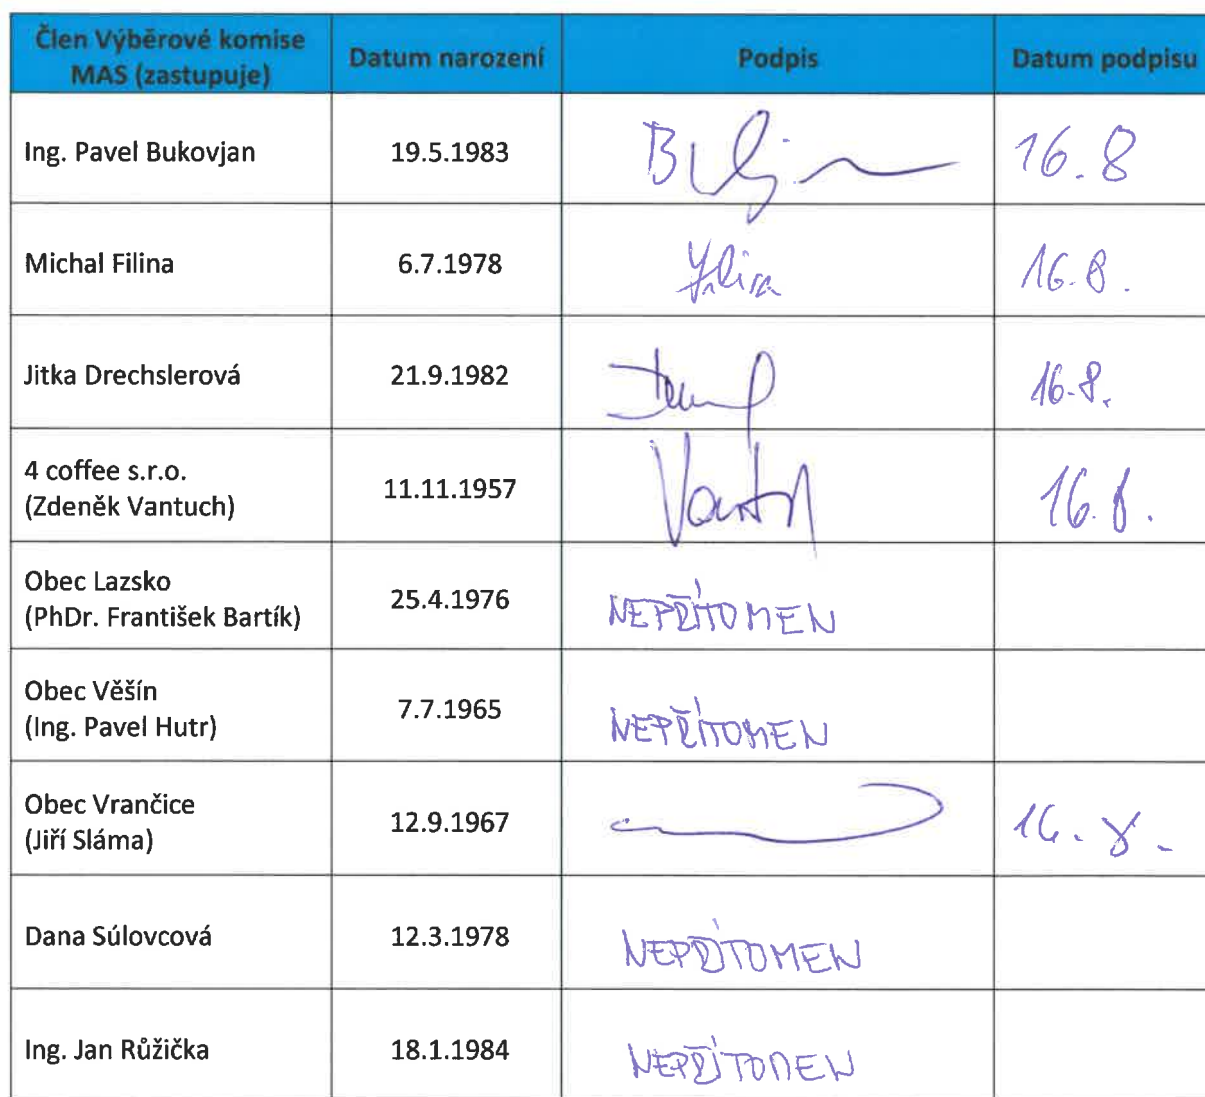 Člen Výběrové komise
MAS (zastupuje)
Datum narození
Podpis
Datum podpisu
Ing. Pavel Bukovjan
19.5.1983
16.8
Michal Filina
6.7.1978
Filina
16.8.
Jitka Drechslerová
21.9.1982
16.8.
4 coffee s.r.o.
(Zdeněk Vantuch)
11.11.1957
16.8.
Obec Lazsko
(PhDr. František Bartík)
25.4.1976
NEPŘÍTOMEN
Obec Věšín
(Ing. Pavel Hutr)
7.7.1965
NEPŘÍTOMEN
Obec Vrančice
(Jiří Sláma)
12.9.1967
16.8.
Dana Súlovcová
12.3.1978
NEPŘÍTOMEN
Ing. Jan Růžička
18.1.1984
NEPŘÍTOMEN